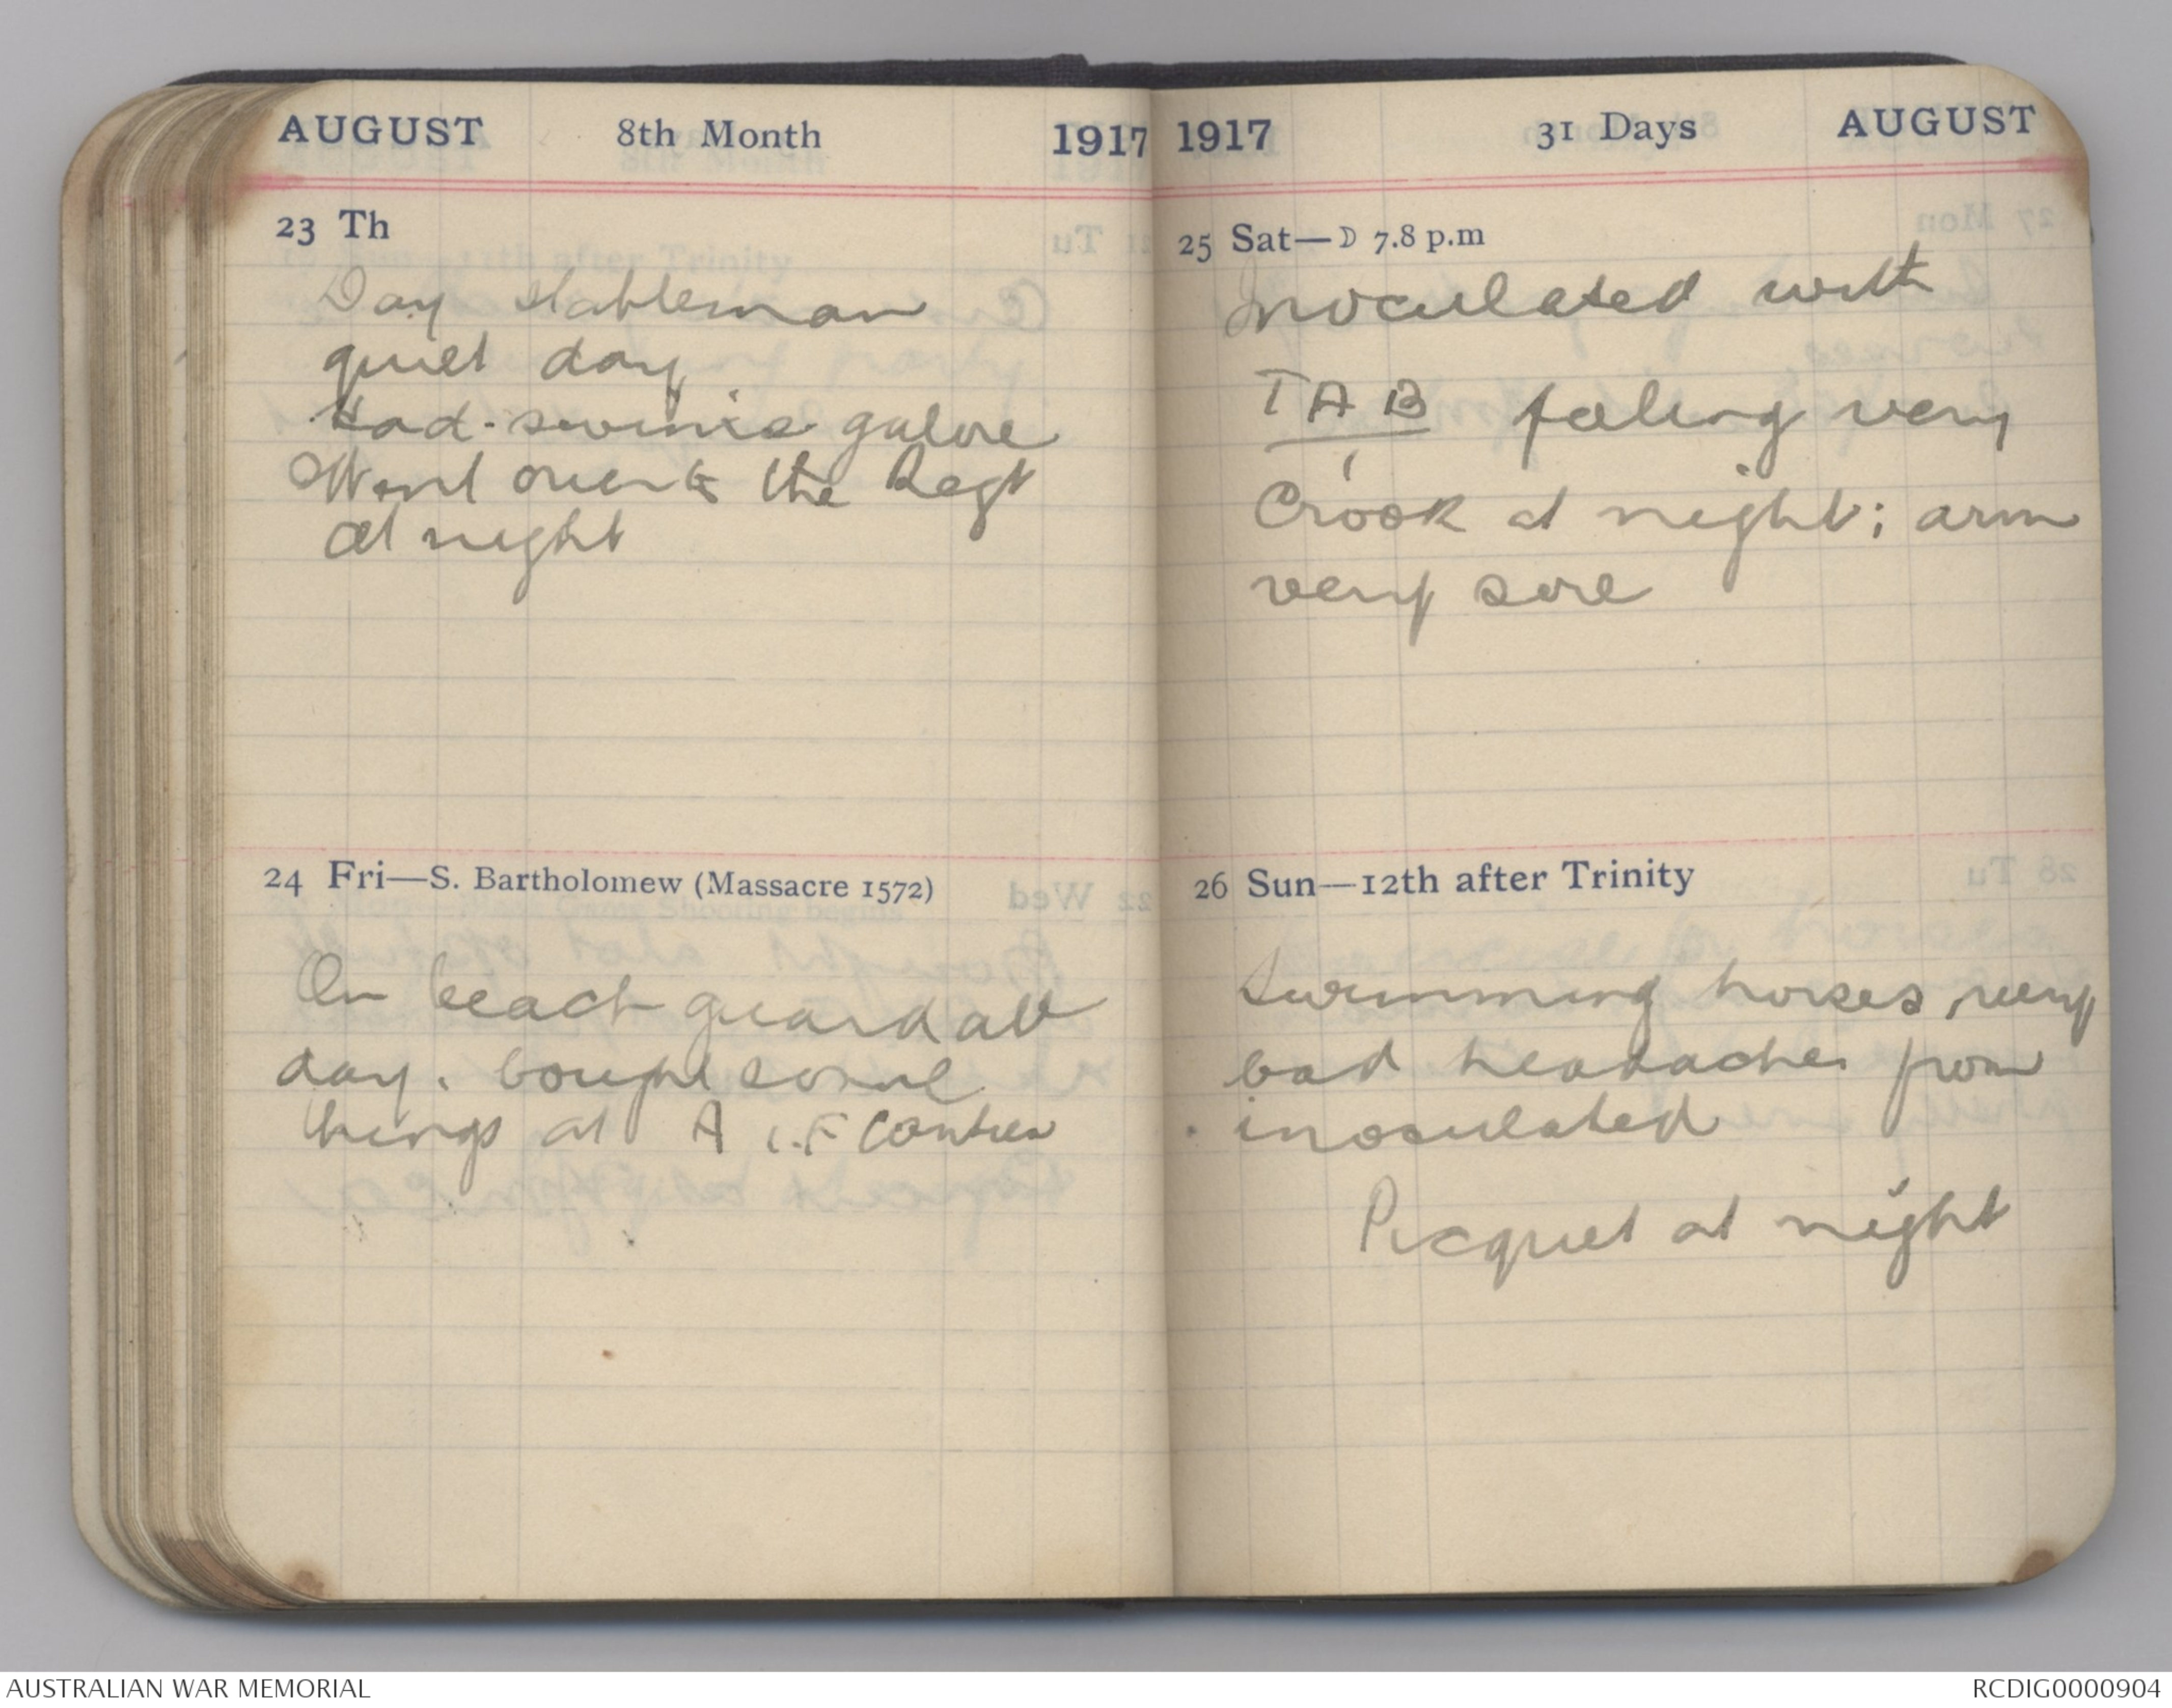 AUGUST 8th Month 1917
23 Th
Day stableman
quiet day
Had swims galore
Went over to the Regt
at night
24 Fri—S. Bartholomew (Massacre 1572)
On beach guard all
day. bought some
things at A I.F Canteen
1917 31 Days AUGUST
25 Sat—☽ 7.8 p.m
Inoculated with
TAB feeling very
Crook at night; arm
very sore
26 Sun—12th after Trinity
Swimming horses, very
bad headaches from
inoculated
Picquet at night
AUSTRALIAN WAR MEMORIAL RCDIG0000904